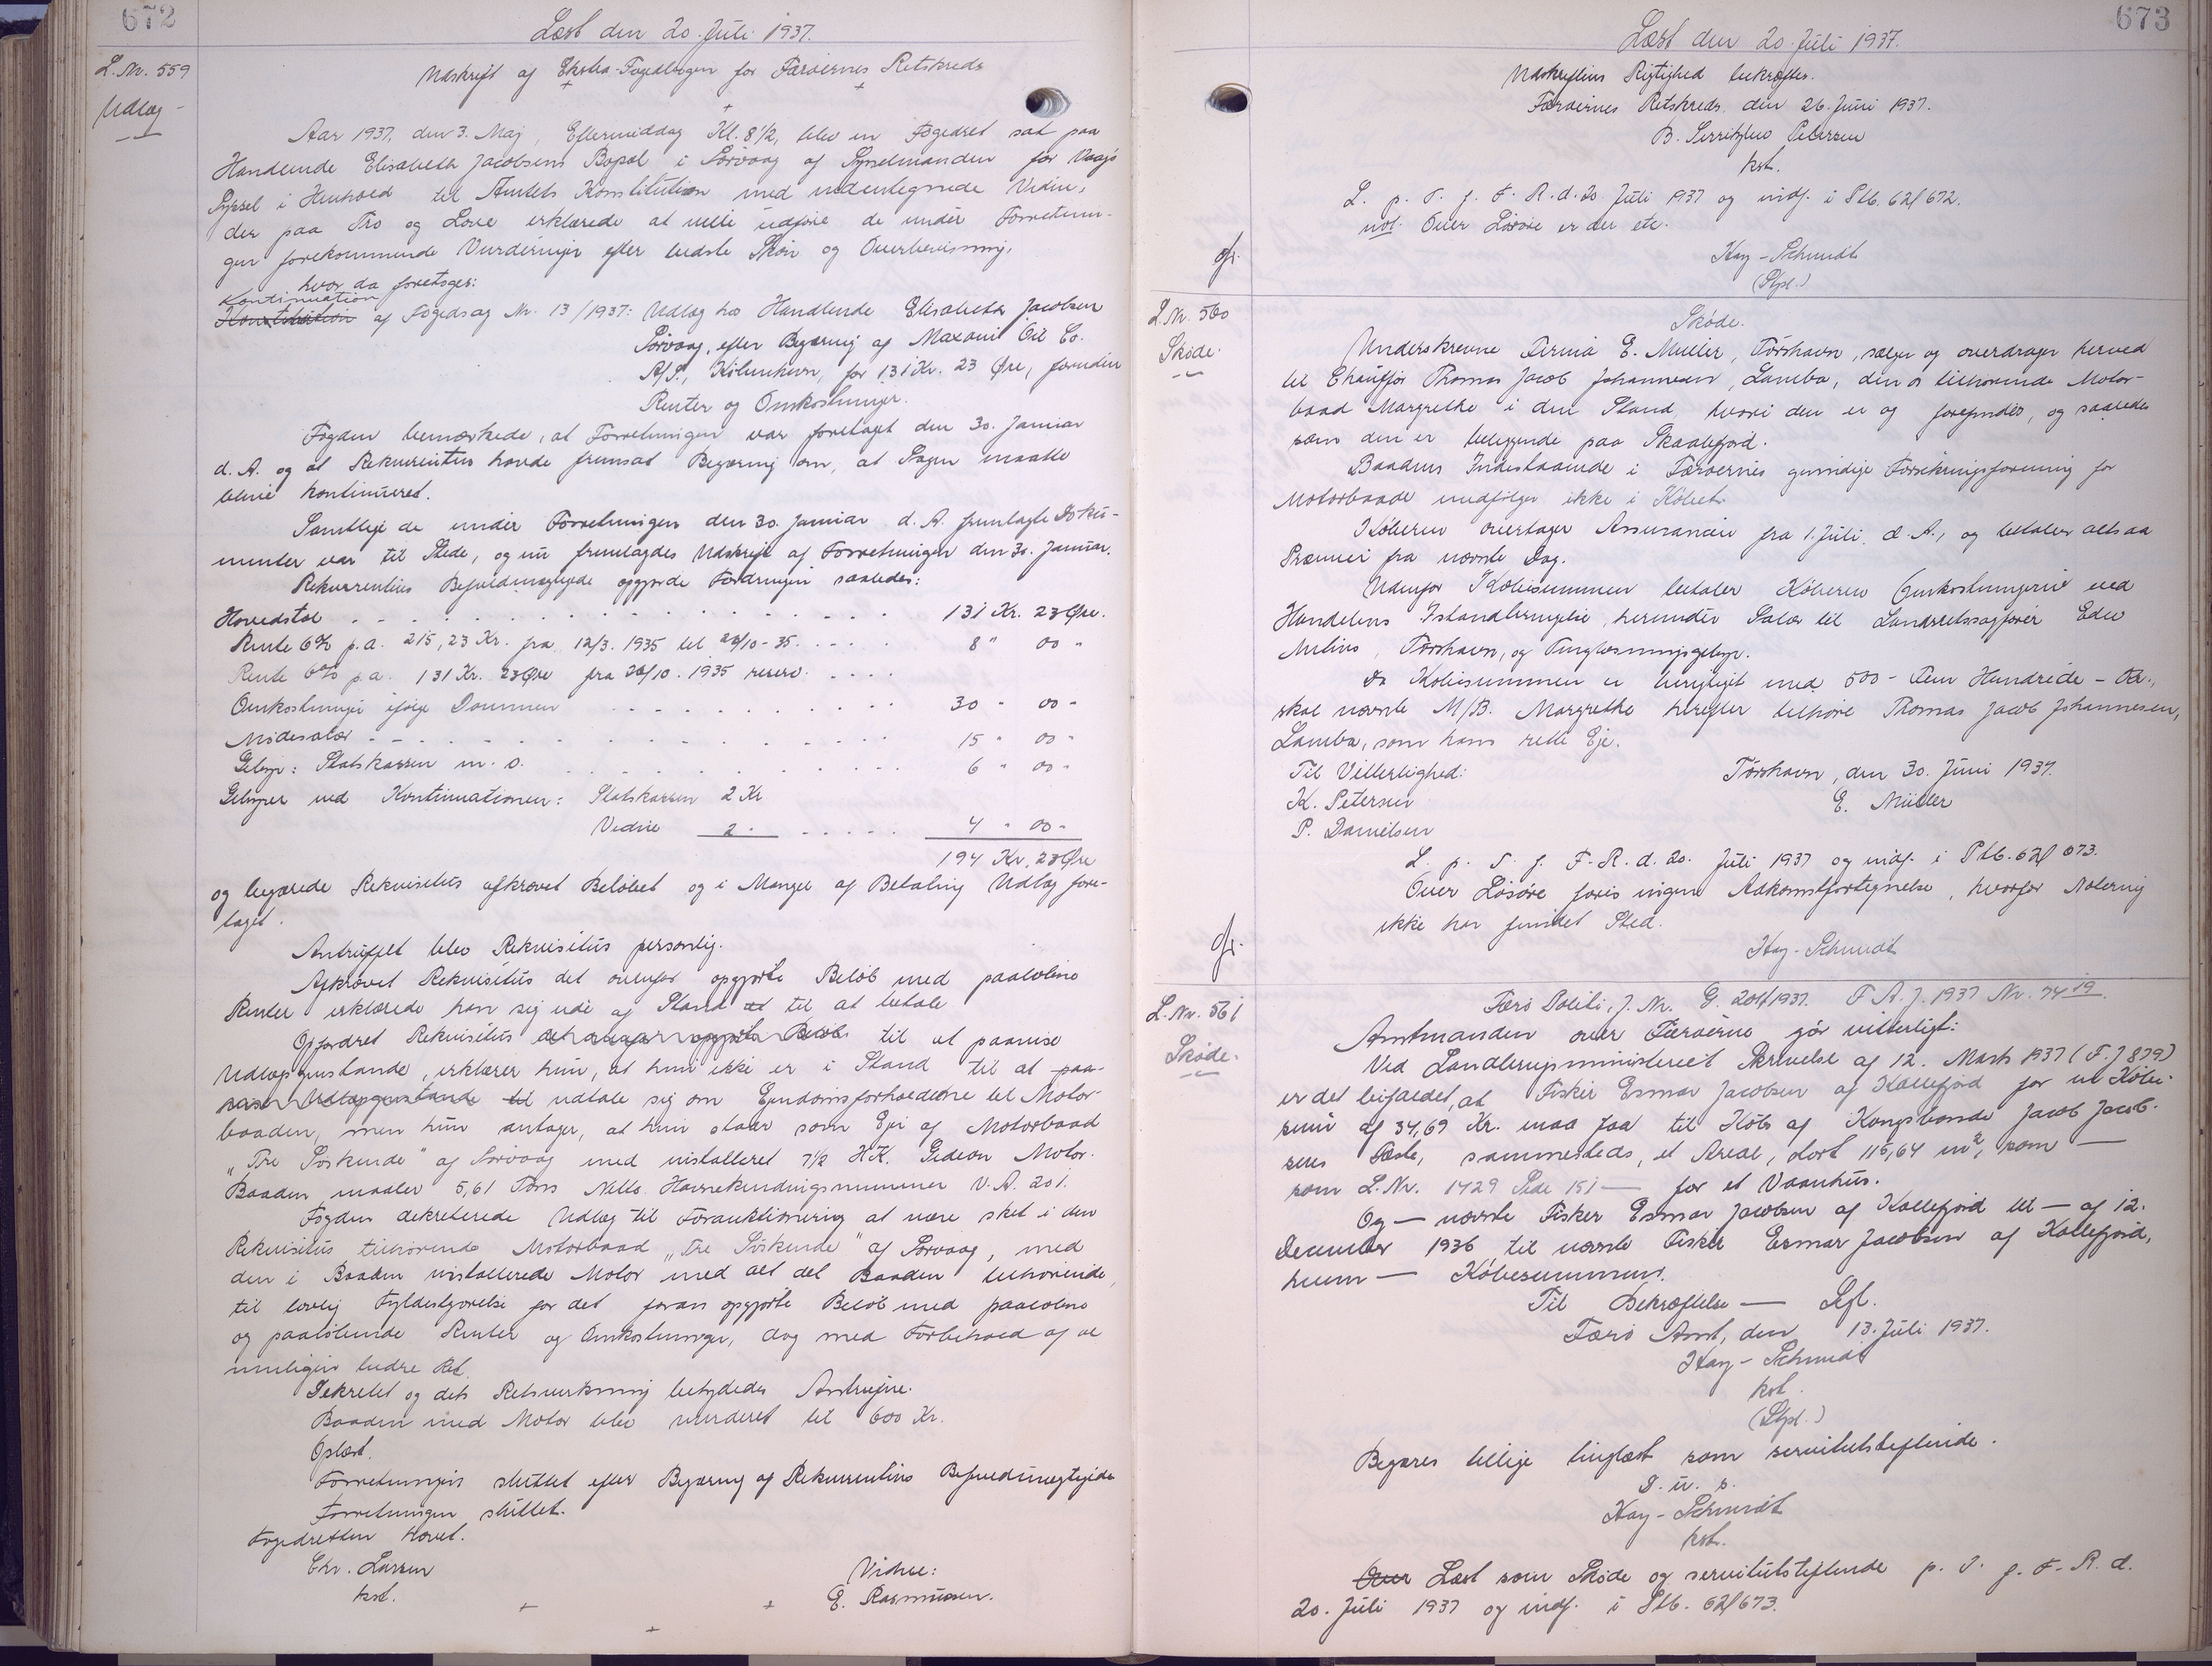 672
Læst den 20. Juli 1937.
L. Nr. 559
Udlæg
Udskrift af Ekstra-Fogedbogen for Færøernes Retskreds
Aar 1937, den 3. Maj, Eftermiddag Kl. 8 1/2, blev en Fogedret sat paa
Handlende Elisabeth Jacobsens Bopæl i Sørvaag af Sysselmanden for Vaagø
Syssel i Henhold til Amtets Konstitution med undertegnede Vidne,
der paa Tro og Love erklærede at ville udføre de under Forretnin-
gen forekommende Vurderinger efter bedste Skøn og Overbevisning,
hvor da foretoges:
Kontinuation
Konstitution af Fogedsag Nr. 13/1937: Udlæg hos Handlende Elisabeth Jacobsen
Sørvaag, efter Begæring af Maxoil Oil Co.
A/S., København, for 131 Kr. 23 Øre, foruden
Renter og Omkostninger.
Fogden bemærkede, at Forretningen var foretaget den 30. Januar
d. A. og at Rekvirentus havde fremsat Begæring om, at Sagen maatte
blive kontinueret.
Samtlige de under Forretningen den 30. Januar d. A. fremlagte Doku-
menter var til Stede, og nu fremlagdes Udskrift af Forretningen den 30. Januar.
Rekvirentens Befuldmægtigede opgjorde Fordringen saaledes:
Hovedstol - - - - 131 Kr. 23 Øre.
Rente 6% p.a. 215,23 Kr. fra 12/3. 1935 til 26/10-35. - - - 8 " 00 "
Rente 6% p.a. 131 Kr. 23 Øre fra 26/10. 1935 reserv. - - -
Omkostninger ifølge Dommen - - - - 30 " 00 "
Mødesalær - - - - 15 " 00 "
Gebyr: Statskassen m. v. - - - - 6 " 00 "
Gebyrer ved Kontinuationen: Statskassen 2 Kr
Vidne 2 " - - - - 4 " 00 "
194 Kr. 23 Øre
og begærede Rekvisitus afkrævet Beløbet og i Mangel af Betaling Udlæg fore-
taget.
Antruffet blev Rekvisitus personlig.
Afkrævet Rekvisitus det ovenfor opgjorte Beløb med paaløbne
Renter erklærede hun sig ude af Stand til at betale
Opfordret Rekvisitus til at paavise
Udlægsgenstande, erklærer hun, at hun ikke er i Stand til at paa-
vise Udlægsgenstande til udtale sig om Ejendomsforholdene til Motor-
baaden, men hun antager, at hun staar som Ejer af Motorbaad
"Tre Søskende" af Sørvaag med installeret 7 1/2 HK. Gideon Motor.
Baaden maaler 5,61 Tons Netto. Havnekendingsnummer V.A. 201.
Fogden dekreterede Udlæg til Forauktionering at være sket i den
Rekvisitus tilhørende Motorbaad "Tre Søskende" af Sørvaag, med
den i Baaden installerede Motor med alt det Baaden tilhørende,
til lovlig Fyldestgørelse for det foran opgjorte Beløb med paaløbne
og paaløbende Renter og Omkostninger, dog med Forbehold af al
muligvis bedre Ret.
Dekretet og dets Retsvirkning betydedes Antrufne.
Baaden med Motor blev vurderet til 600 Kr.
Oplæst.
Forretningen sluttet efter Begæring af Rekvirentens Befuldmægtigede
Forretningen sluttet.
Fogedretten hævet.
Chr. Larsen
kst.
Vidne:
E. Rasmussen.
673
Læst den 20. Juli 1937.
Udskriftens Rigtighed bekræftes.
Færøernes Retskreds, den 26. Juni 1937.
B. Serritzlew Petersen
kst.
L. p. T. f. F. R. d. 20. Juli 1937 og indf. i Ptb. 62/672.
not. Over Løsøre er der etc.
Kay-Schmidt
(Stpl.)
L. Nr. 560
Skøde.
Skøde.
Underskrevne Firma E. Müller, Tórshavn, sælger og overdrager herved
til Chauffør Thomas Jacob Johannesen, Lamba, den os tilhørende Motor-
baad Margrethe i den Stand, hvori den er og forefindes, og saaledes
som den er beliggende paa Skaalefjord.
Baadens Indestaaende i Færøernes gensidige Forsikringsforening for
Motorbaade medfølger ikke i Købet.
Køberen overtager Assurancen fra 1. Juli d. A., og betaler altsaa
Præmie fra nævnte Dag.
Udenfor Købesummen betaler Køberen Omkostningerne ved
Handelens Istandbringelse, herunder Salær til Landsretssagfører Edw
Mitens, Tórshavn, og Tinglæsningsgebyr.
Da Købesummen er berigtiget med 500 - Fem Hundrede - Kr.,
skal nævnte M/B. Margrethe herefter tilhøre Thomas Jacob Johannesen,
Lamba, som hans rette Eje.
Til Vitterlighed:
K. Petersen
P. Danielsen
Tórshavn, den 30. Juni 1937.
E. Müller
L. p. T. f. F. R. d. 20. Juli 1937 og indf. i Ptb. 62/673.
Over Løsøre føres ingen Adkomstfortegnelse, hvorfor Notering
ikke har fundet Sted.
Kay-Schmidt
L. Nr. 561
Skøde.
Færø Politi, J. Nr. G. 204/1937. F.A.J. 1937 Nr. 74 19.
Amtmanden over Færøerne gør vitterligt:
Ved Landbrugsministeriet Skrivelse af 12. Marts 1937 (F.J 879)
er det bifaldet, at Fisker Esmar Jacobsen af Kollefjord for en Købe-
sum af 34,69 Kr. maa faa til Købs af Kongsbonde Jacob Jacob-
sens Fæste, sammesteds, et Areal, stort 115,64 m², som —
som L. Nr. 1429 Side 151 — for et Vaanhus.
Og — nævnte Fisker Esmar Jacobsen af Kollefjord til — af 12.
December 1936 til nævnte Fisker Esmar Jacobsen af Kollefjord,
hvem — Købesummen.
Til Bekræftelse — Segl.
Færø Amt, den 13. Juli 1937.
Kay-Schmidt
kst.
(Stpl.)
Begæres tillige tinglæst som servitutstiftende.
D. u. s.
Kay-Schmidt
kst.
Over Læst som Skøde og servitutstiftende p. T. f. F. R. d.
20. Juli 1937 og indf. i Ptb. 62/673.